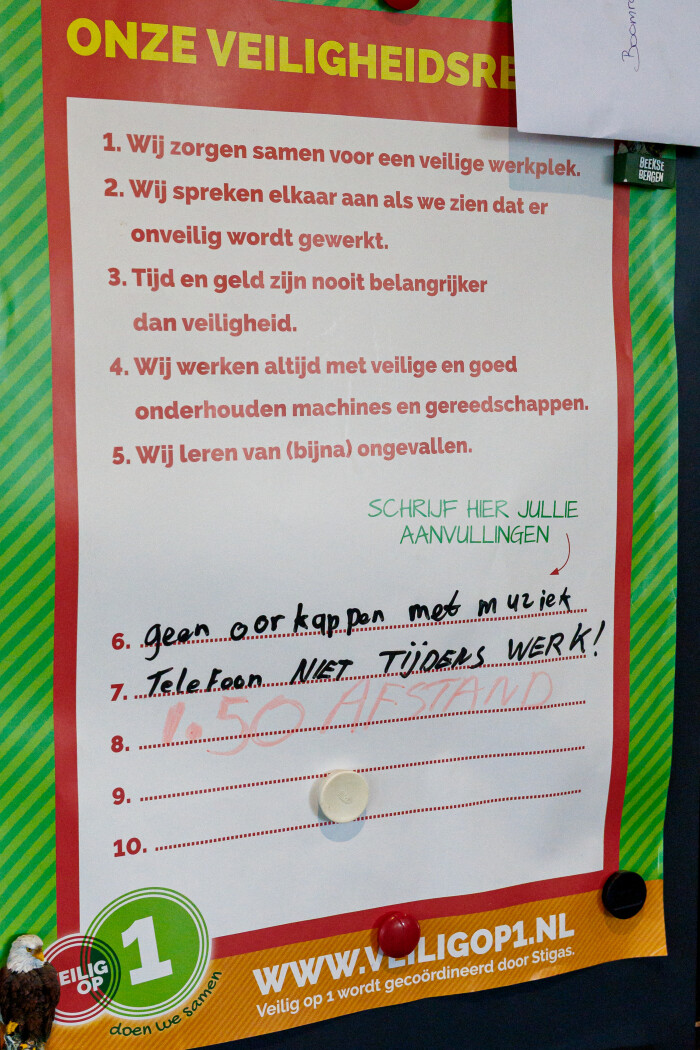 ONZE VEILIGHEIDSRE
Boomr
BEEKSE
BERGEN
1. Wij zorgen samen voor een veilige werkplek.
2. Wij spreken elkaar aan als we zien dat er
onveilig wordt gewerkt.
3. Tijd en geld zijn nooit belangrijker
dan veiligheid.
4. Wij werken altijd met veilige en goed
onderhouden machines en gereedschappen.
5. Wij leren van (bijna) ongevallen.
SCHRIJF HIER JULLIE
AANVULLINGEN
6. geen oorkappen met muziek
7. Telefoon NIET TIJDENS WERK!
8. 1.50 AFSTAND
9.
10.
VEILIG
OP
1
doen we samen
WWW.VEILIGOP1.NL
Veilig op 1 wordt gecoördineerd door Stigas.